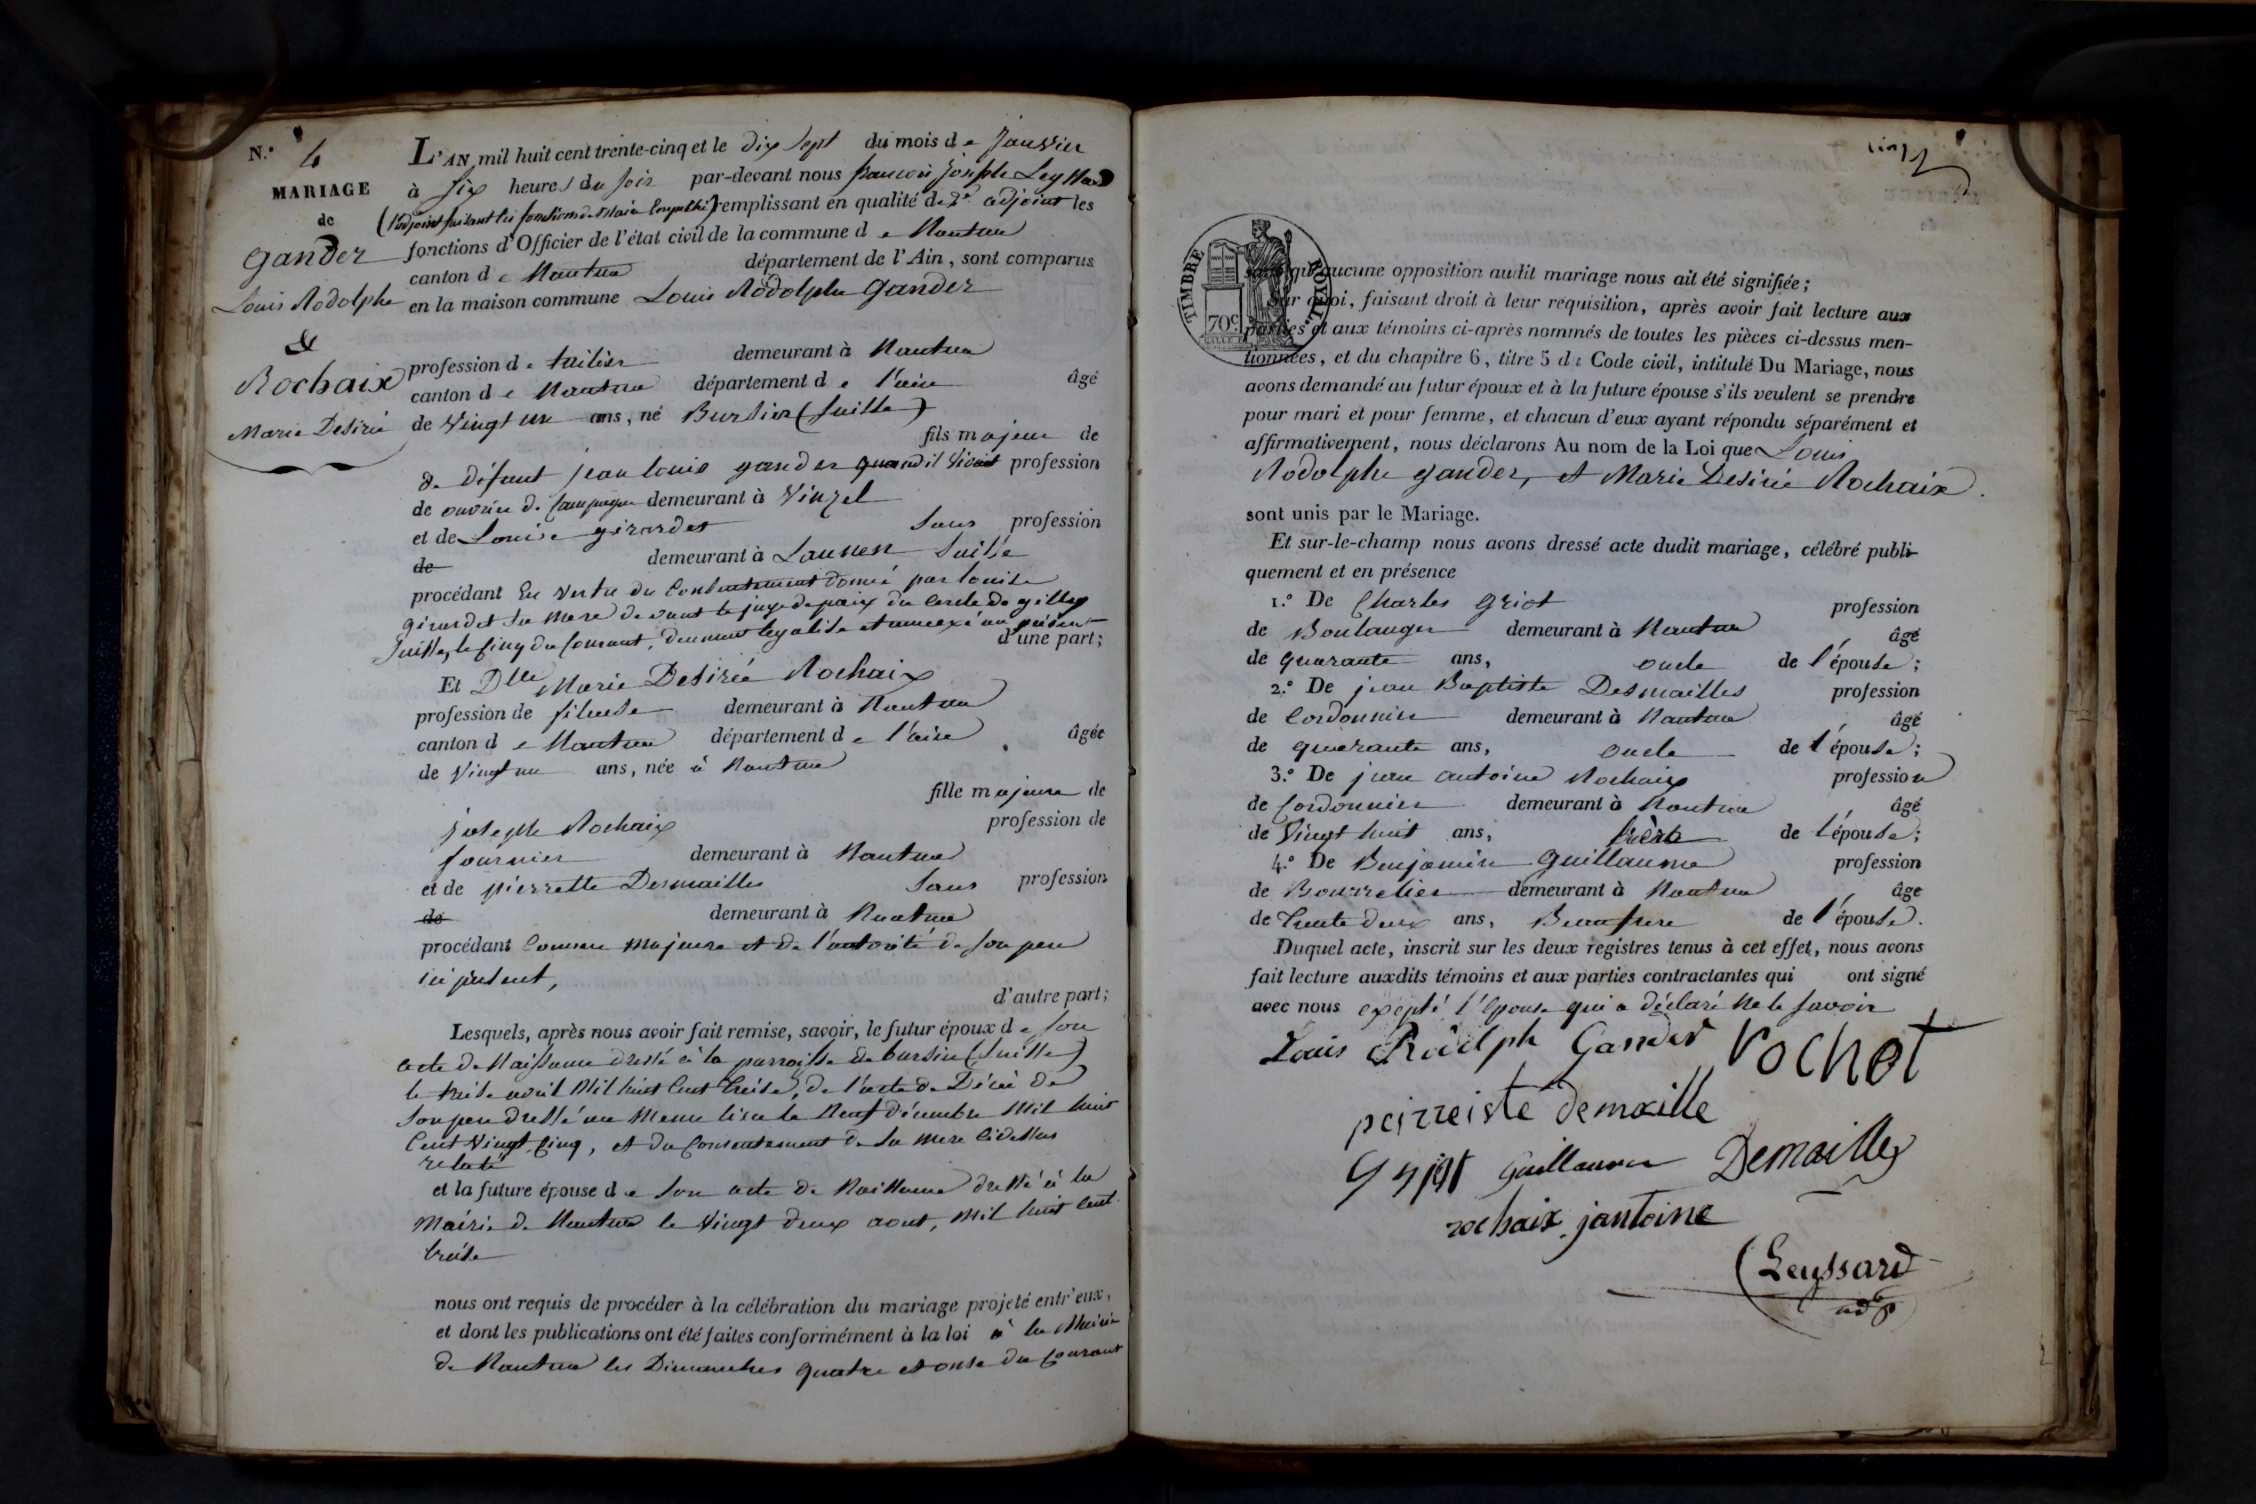 N.º 4
MARIAGE
de
Gander
Louis Rodolphe
&
Rochaix
Marie Desirée
L'AN mil huit cent trente-cinq et le dix sept du mois de Janvier
à six heures du soir par-devant nous françois joseph Leyssard
(l'adjoint faisant les fonctions de Maire empêché) remplissant en qualité de 2e adjoint les
fonctions d'Officier de l'état civil de la commune de Nantua
canton de Nantua département de l'Ain, sont comparus
en la maison commune Louis Rodolphe Gander
profession de tuilier demeurant à Nantua
canton de Nantua département de l'ain âgé
de vingt un ans, né Bursin (suisse)
fils majeur de
de défunt jean louis gander quand il vivait profession
de ouvrier de campagne demeurant à Vinzel
et de Louise girardet sans profession
de demeurant à Suisse
procédant en vertu du consentement donné par louise
girardet sa mere devant le juge de paix du cercle de gilly
suisse, le cinq du courant, duement legalisé et annexé au présent
d'une part;
Et Dlle Marie Desirée Rochaix
profession de fileuse demeurant à Nantua
canton de Nantua département de l'ain âgée
de vingt un ans, née à Nantua
fille majeure de
joseph Rochaix profession de
fournier demeurant à Nantua
et de pierrette Desmailles sans profession
de demeurant à Nantua
procédant comme majeure et de l'autorité de son pere
ici présent,
d'autre part;
Lesquels, après nous avoir fait remise, savoir, le futur époux de son
acte de Naissance dressé à la parroisse de bursin (suisse)
le treise avril Mil huit cent treise, de l'acte de Décès de
son pere dressé au meme lieu le neuf décembre Mil huit
cent vingt cinq, et du consentement de sa mere cidessus
relaté
et la future épouse de son acte de Naissance dressé à la
Mairie de Nantua le vingt deux aout, Mil huit cent
treise
nous ont requis de procéder à la célébration du mariage projeté entr'eux,
et dont les publications ont été faites conformément à la loi à la Mairie
de Nantua les Dimanches quatre et onse du courant
cinq
TIMBRE ROYAL
70c
sans qu'aucune opposition audit mariage nous ait été signifiée;
Sur quoi, faisant droit à leur requisition, après avoir fait lecture aux
parties et aux témoins ci-après nommés de toutes les pièces ci-dessus men-
tionnées, et du chapitre 6, titre 5 du Code civil, intitulé Du Mariage, nous
avons demandé au futur époux et à la future épouse s'ils veulent se prendre
pour mari et pour femme, et chacun d'eux ayant répondu séparément et
affirmativement, nous déclarons Au nom de la Loi que Louis
Rodolphe gander, et Marie Desirée Rochaix.
sont unis par le Mariage.
Et sur-le-champ nous avons dressé acte dudit mariage, célébré publi-
quement et en présence
1.º De Charles griot profession
de Boulanger demeurant à Nantua âgé
de quarante ans, oncle de l'épouse;
2.º De jean Baptiste Desmailles profession
de Cordonnier demeurant à Nantua âgé
de quarante ans, oncle de l'épouse;
3.º De jean antoine Rochaix profession
de Cordonnier demeurant à Nantua âgé
de vingt huit ans, frère de l'épouse;
4.º De Benjamin Guillaume profession
de Bourrelier demeurant à Nantua âgé
de trente deux ans, Beaufrere de l'épouse.
Duquel acte, inscrit sur les deux registres tenus à cet effet, nous avons
fait lecture auxdits témoins et aux parties contractantes qui ont signé
avec nous excepté l'épouse qui a déclaré ne le savoir
Louis Rodolph Gander rochet
peirreiste demaille
Guillaume Demailles
rochaix jantoine
Leyssard
adt